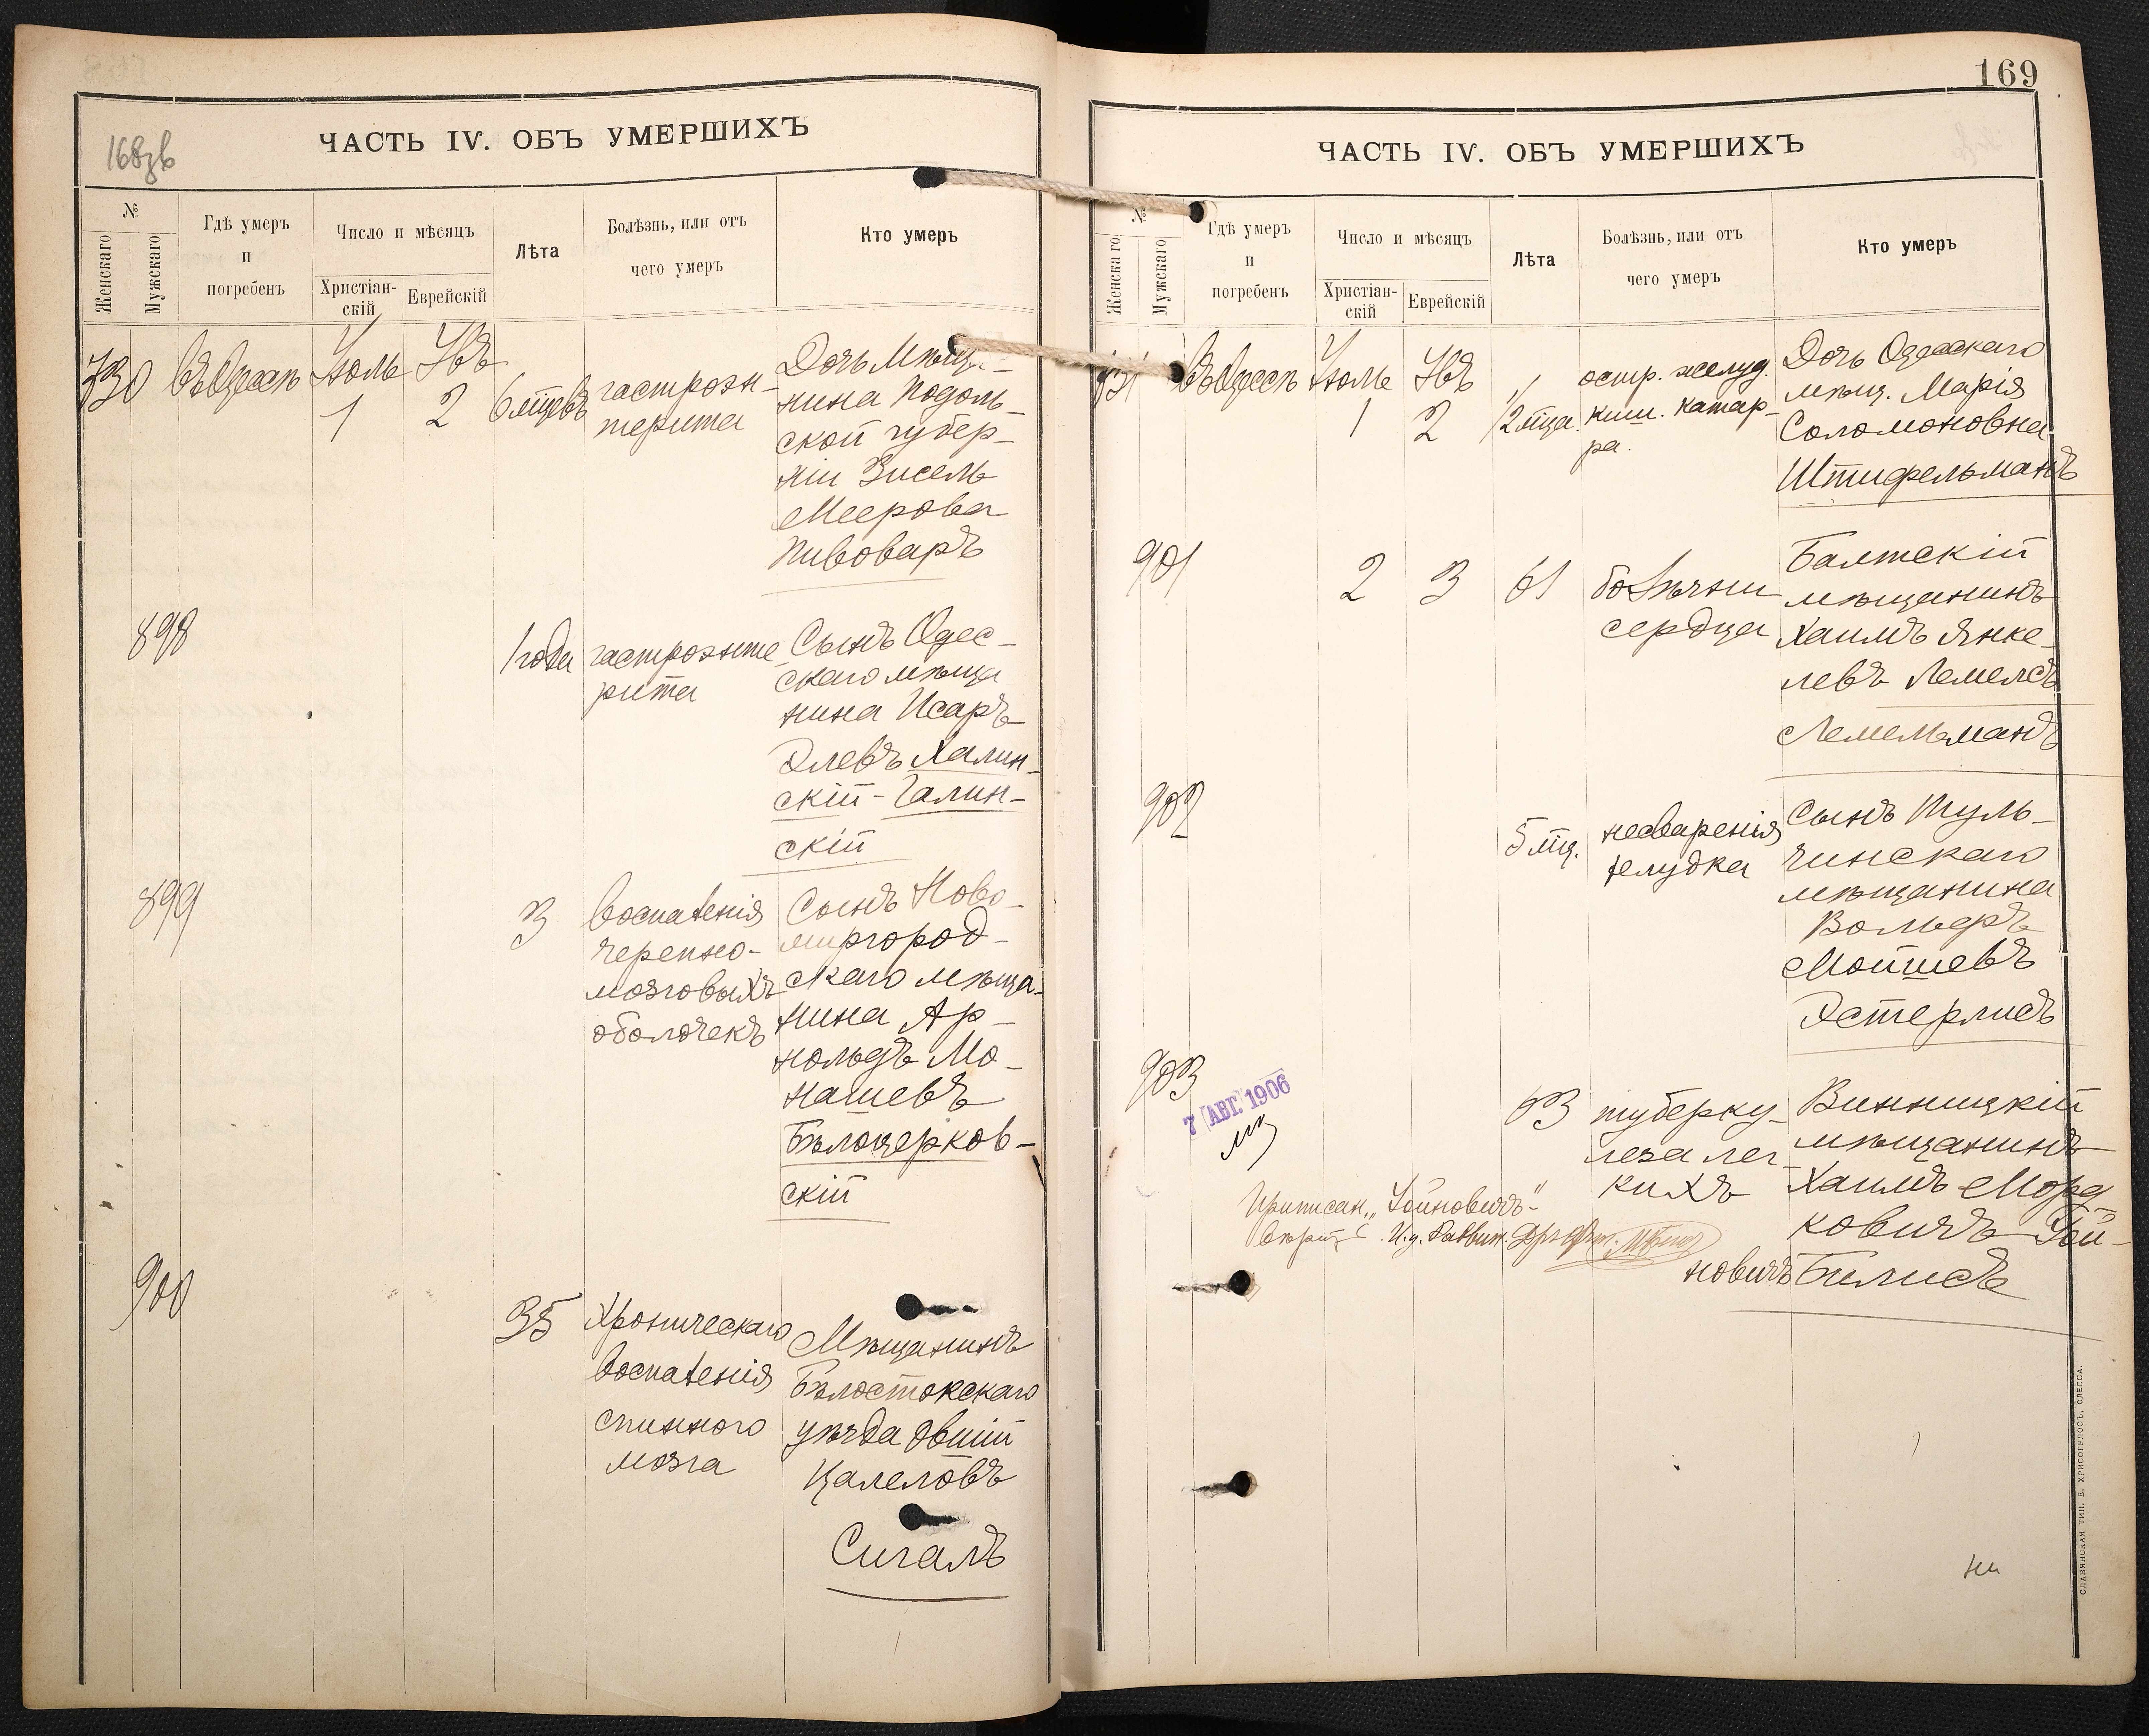 168зв
ЧАСТЬ IV. ОБЪ УМЕРШИХЪ
№
Женскаго
Мужскаго
Гдѣ умеръ
и
погребенъ
Число и мѣсяцъ
Христіан-
скій
Еврейскій
Лѣта
Болѣзнь, или отъ
чего умеръ
Кто умеръ
730
въ Одессѣ
Іюль
1
2
6 мцевъ
гастроэн-
терита
Дочь мѣща-
нина Подоль-
ской губер-
ніи Зисель
Меерова
Пивоваръ
898
1 года
гастроэнте
рита
Сынъ Одес-
скаго мѣща
нина Исаръ
Элевъ Халин-
скій-Галин-
скій
899
3
воспаленія
черепно-
мозговыхъ
оболочекъ
Сынъ Ново-
миргород-
скаго мѣща-
нина Ар-
нольдъ Мо-
нашевъ
Бѣлоцерков-
скій
900
35
Хроническаго
воспаленія
спинного
мозга
Мѣщанинъ
Бѣлостокскаго
уѣзда Овшій
Калеловъ
Сигалъ
169
ЧАСТЬ IV. ОБЪ УМЕРШИХЪ
№
Женскаго
Мужскаго
Гдѣ умеръ
и
погребенъ
Число и мѣсяцъ
Христіан-
скій
Еврейскій
Лѣта
Болѣзнь, или отъ
чего умеръ
Кто умеръ
731
въ Одессѣ
Іюль
1
2
1/2 мца.
остр. желуд.
киш. катар-
ра.
Дочь Одесскаго
мѣщ. Марія
Соломоновна
Штифельманъ
901
2
3
61
болѣзни
сердца
Балтскій
мѣщанинъ
Хаимъ Янке-
левъ Лемелсъ
Лемельманъ
902
5 мц.
несваренія
желудка
Сынъ Туль-
чинскаго
мѣщанина
Вольеръ
Мойшевъ
Эстерлисъ
903
7 АВГ. 1906
63
туберку-
леза лег-
кихъ
Винницкій
мѣщанинъ
Хаимъ Морд
ковичъ Гой-
новичъ Билисъ
Приписан. „Гойновичъ"
СЛАВЯНСКАЯ ТИП. Е. ХРИСОГЕЛОСЪ, ОДЕССА.